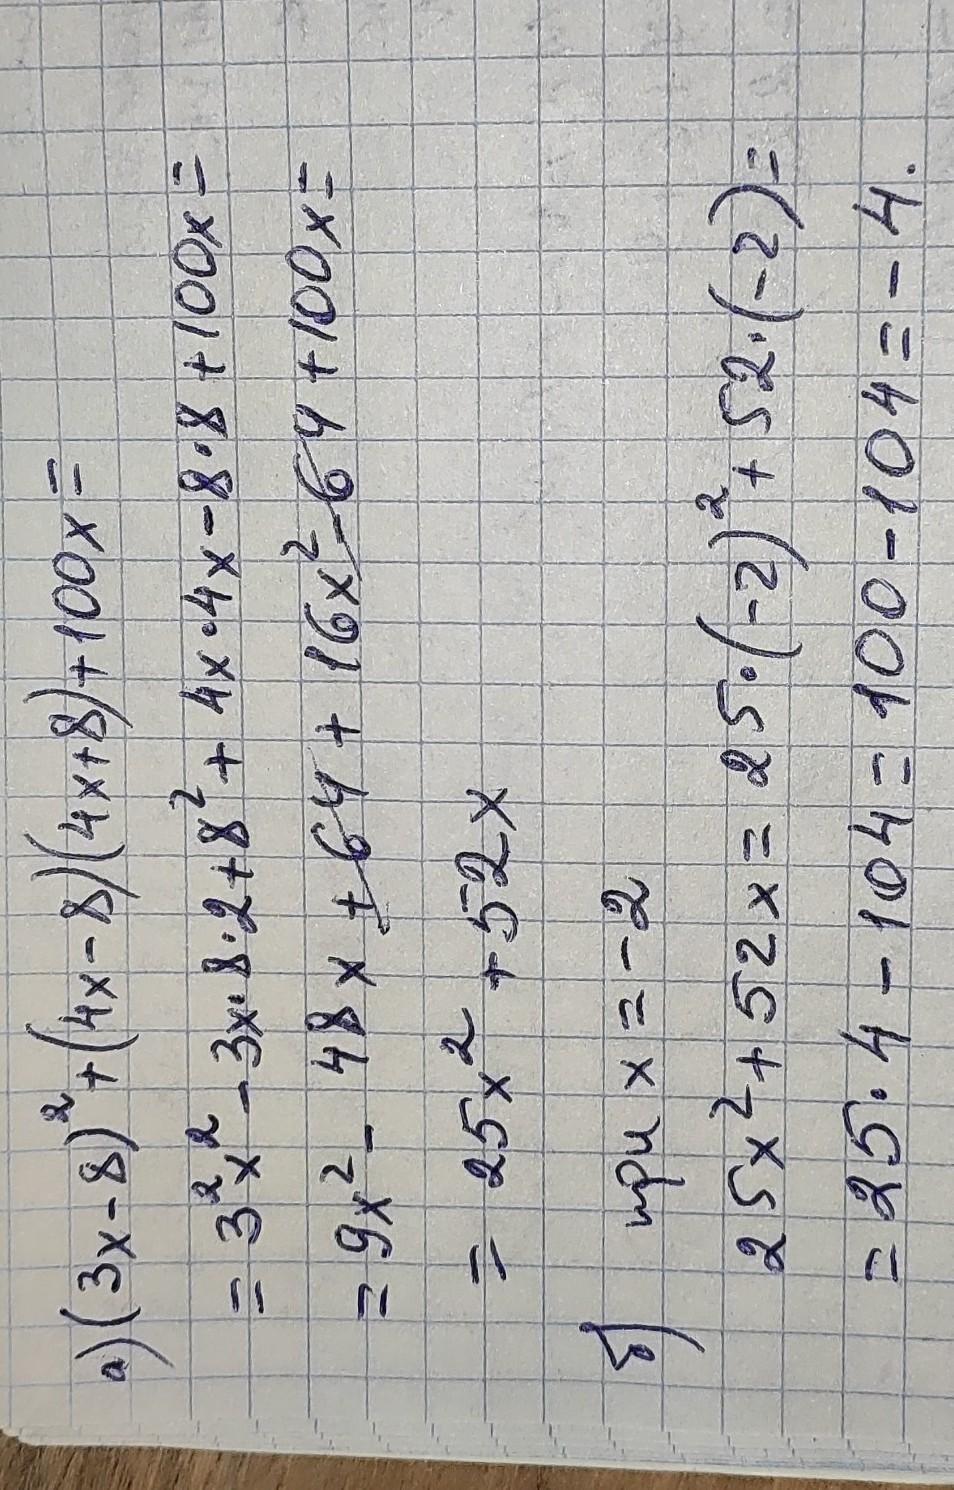 а) (3x-8)² + (4x-8)(4x+8)+100x =
= 3²x² - 3x·8·2+8² + 4x·4x-8·8+100x =
= 9x² - 48x + 64 + 16x² - 64 + 100x =
= 25x² + 52x
б) при x = -2
25x² + 52x = 25·(-2)² + 52·(-2) =
= 25·4 - 104 = 100-104 = -4.